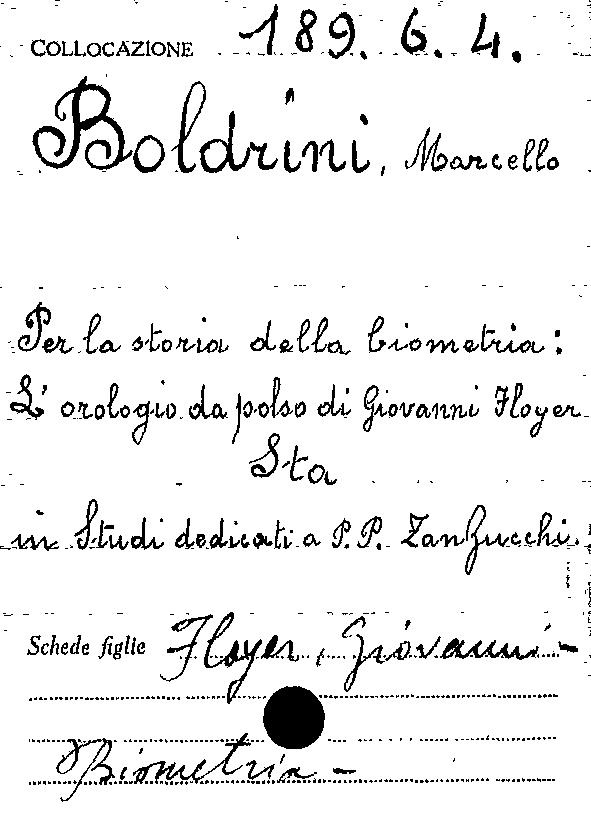 COLLOCAZIONE 189. 6. 4.
Boldrini, Marcello
Per la storia della biometria:
L'orologio da polso di Giovanni Floyer
Sta
in Studi dedicati a P.P. Zanzucchi.
Schede figlie Floyer, Giovanni -
Biometria -